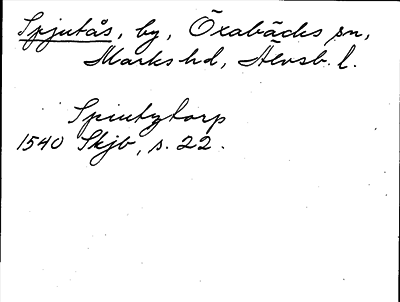 Spjutås, by, Öxabäcks sn,
Marks hd, Älvsb. l.
Spiutztorp
1540 Skjb, s. 22.